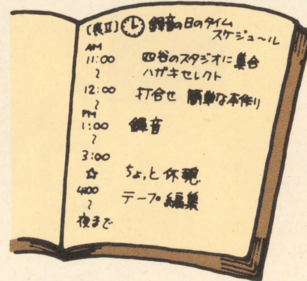 〔表II〕 録音の日のタイム
スケジュール
AM
11:00 四谷のスタジオに集合
〜 ハガキセレクト
12:00 打合せ 簡単な本作り
〜
PM
1:00 録音
〜
3:00
☆ ちょっと休憩
4:00 テープ編集
〜
夜まで